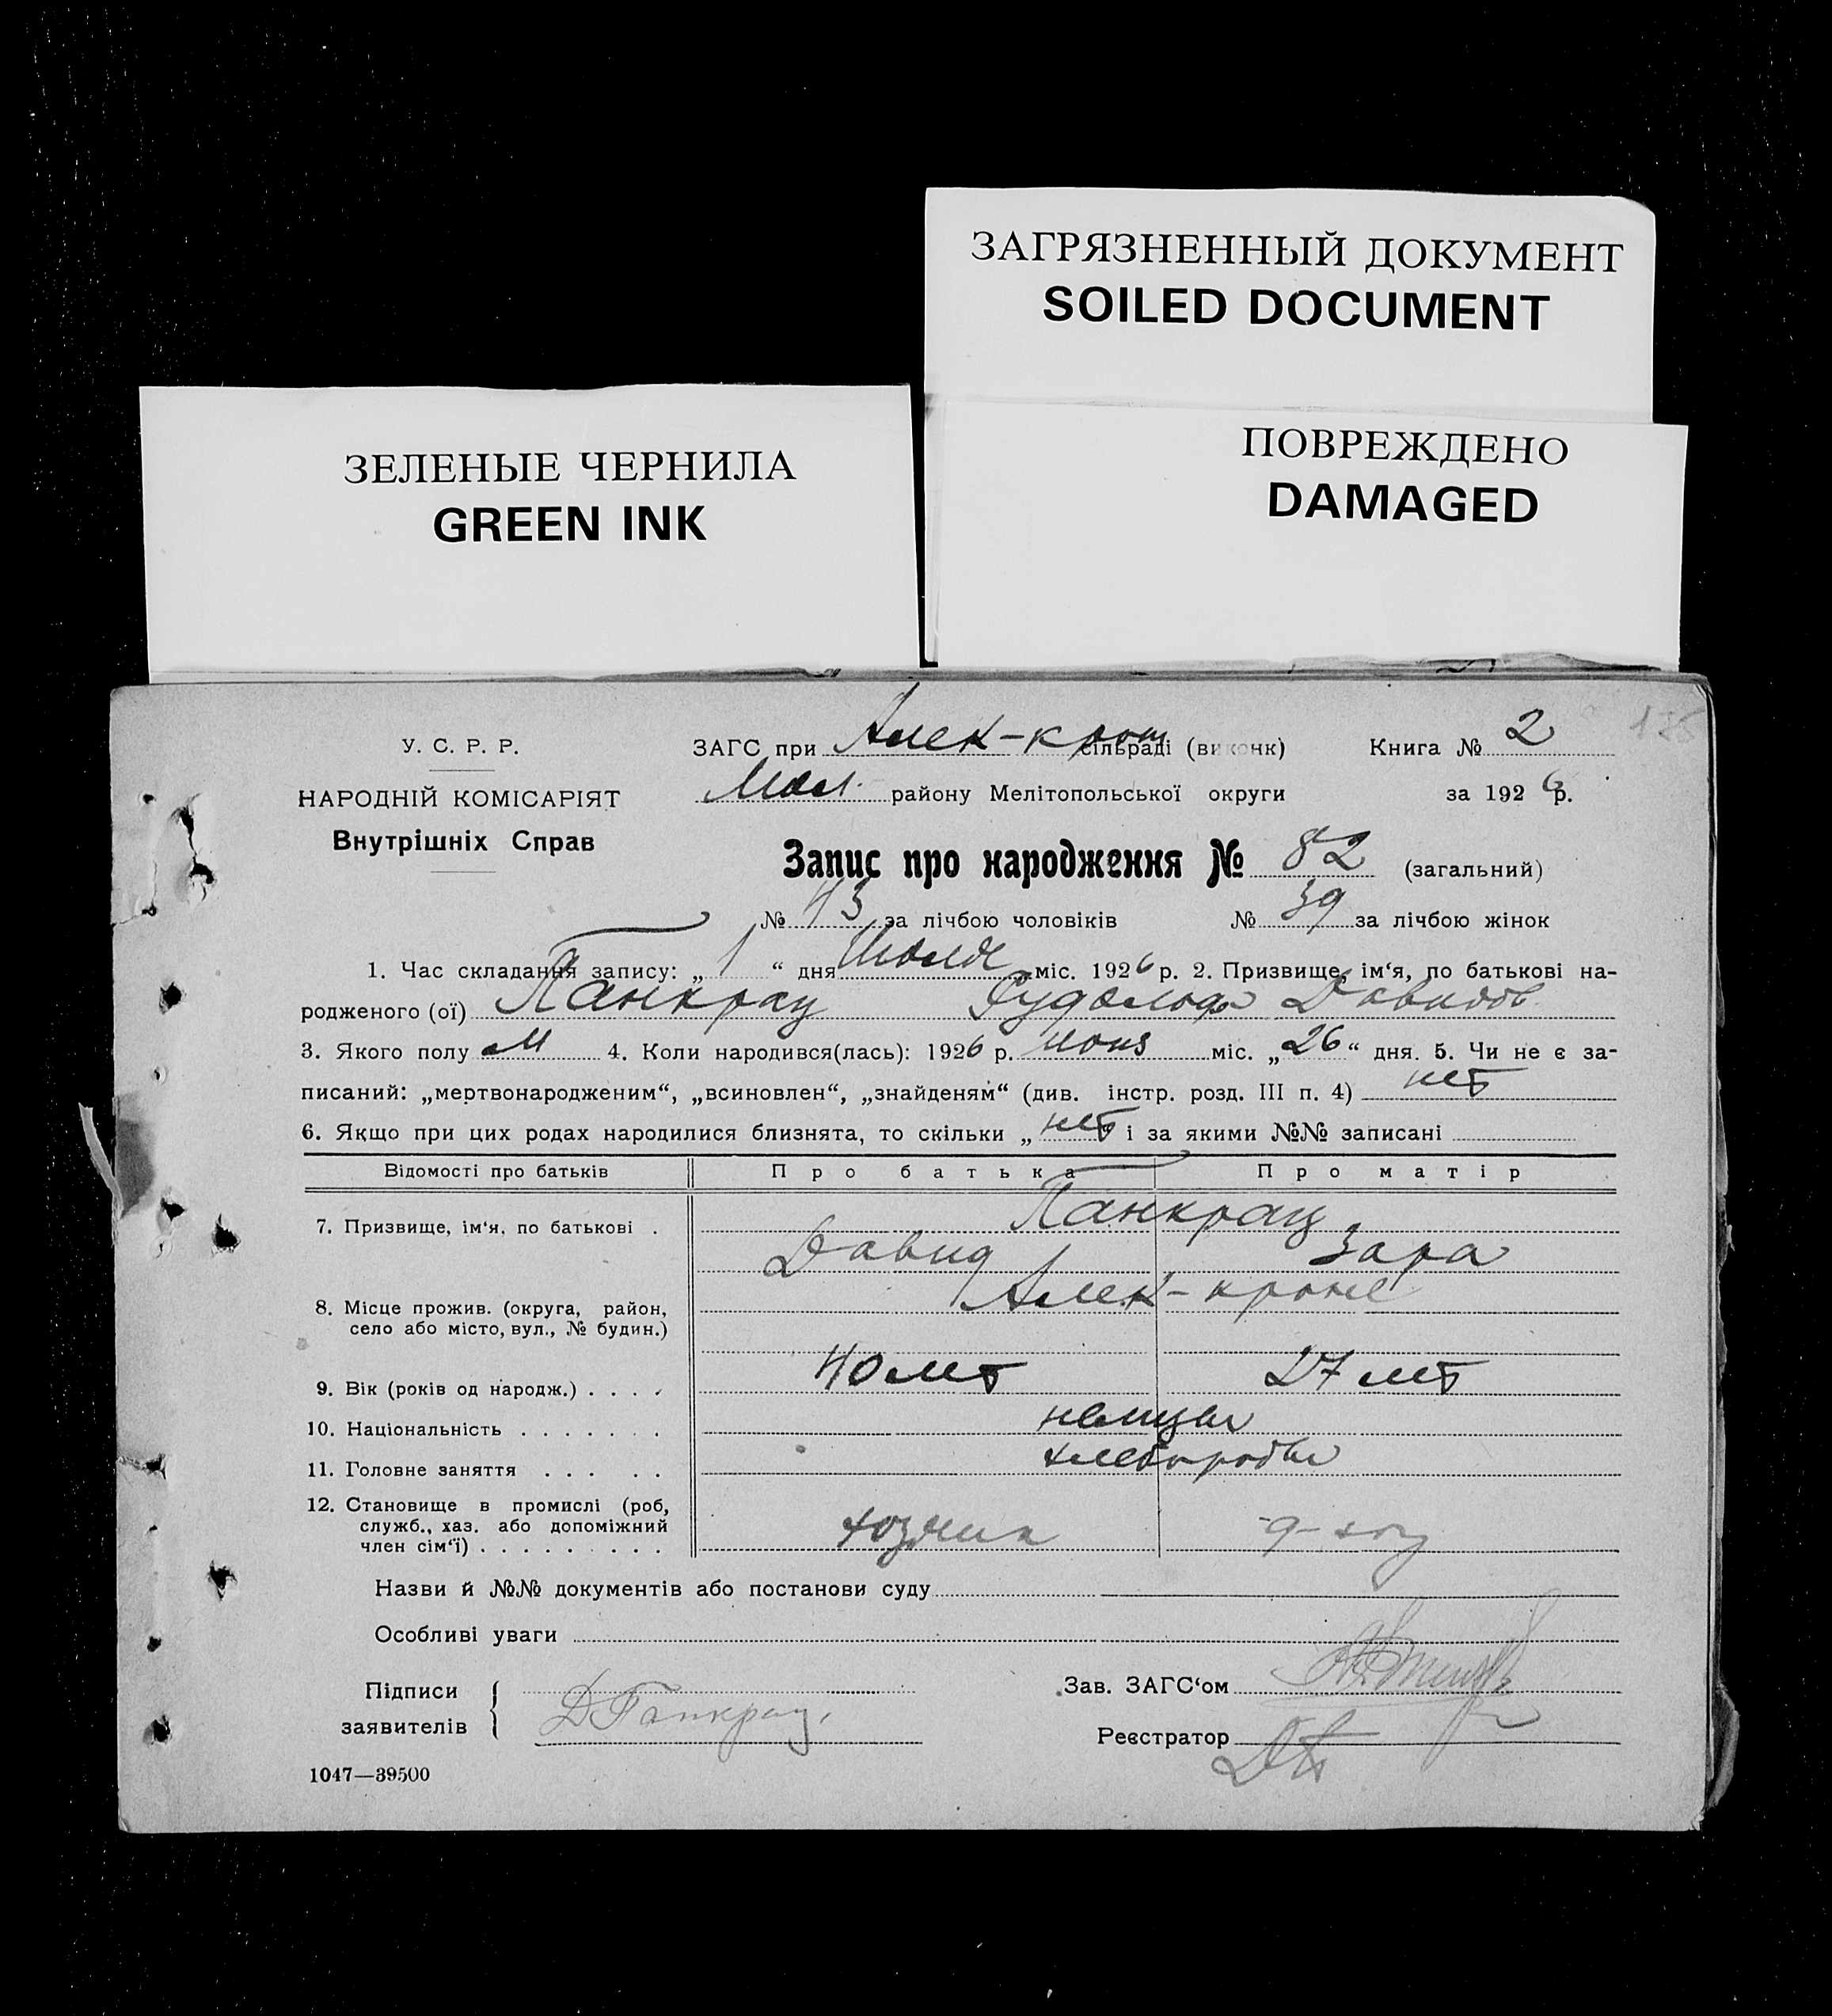 ЗАГРЯЗНЕННЫЙ ДОКУМЕНТ
SOILED DOCUMENT
ЗЕЛЕНЫЕ ЧЕРНИЛА
GREEN INK
ПОВРЕЖДЕНО
DAMAGED
У. С. Р. Р.
НАРОДНІЙ КОМІСАРІЯТ
Внутрішніх Справ
ЗАГС при Алек-крон сільраді (виконк) Книга № 2
Мол. району Мелітопольської округи за 1926 р.
Запис про народження № 82 (загальний)
№ 43 за лічбою чоловіків № 39 за лічбою жінок
1. Час складання запису: „ 1 “ дня Июля міс. 1926 р. 2. Призвище, ім‘я, по батькові на-
родженого (ої) Панкрац Рудольф Давидов
3. Якого полу м 4. Коли народився(лась): 1926 р. июня міс. „26“ дня. 5. Чи не є за-
писаний: „мертвонародженим“, „всиновлен“, „знайденям“ (див. інстр. розд. III п. 4) нет
6. Якщо при цих родах народилися близнята, то скільки „ нет і за якими №№ записані
Відомості про батьків Про батька Про матір
7. Призвище, ім‘я, по батькові . Панкрац
Давид Зара
8. Місце прожив. (округа, район, Алек-кроне
село або місто, вул., № будин.)
9. Вік (років од народж.) . . . . 40 лет 27 лет
10. Національність . . . . . . . немцы
11. Головне заняття . . . . . хлеборобы
12. Становище в промислі (роб,
служб., хаз. або допоміжний
член сім‘ї) . . . . . . . . . хозяин д-хоз
Назви й №№ документів або постанови суду
Особливі уваги
Підписи Зав. ЗАГС‘ом
заявителів Д Панкрац. Реєстратор
1047—39500